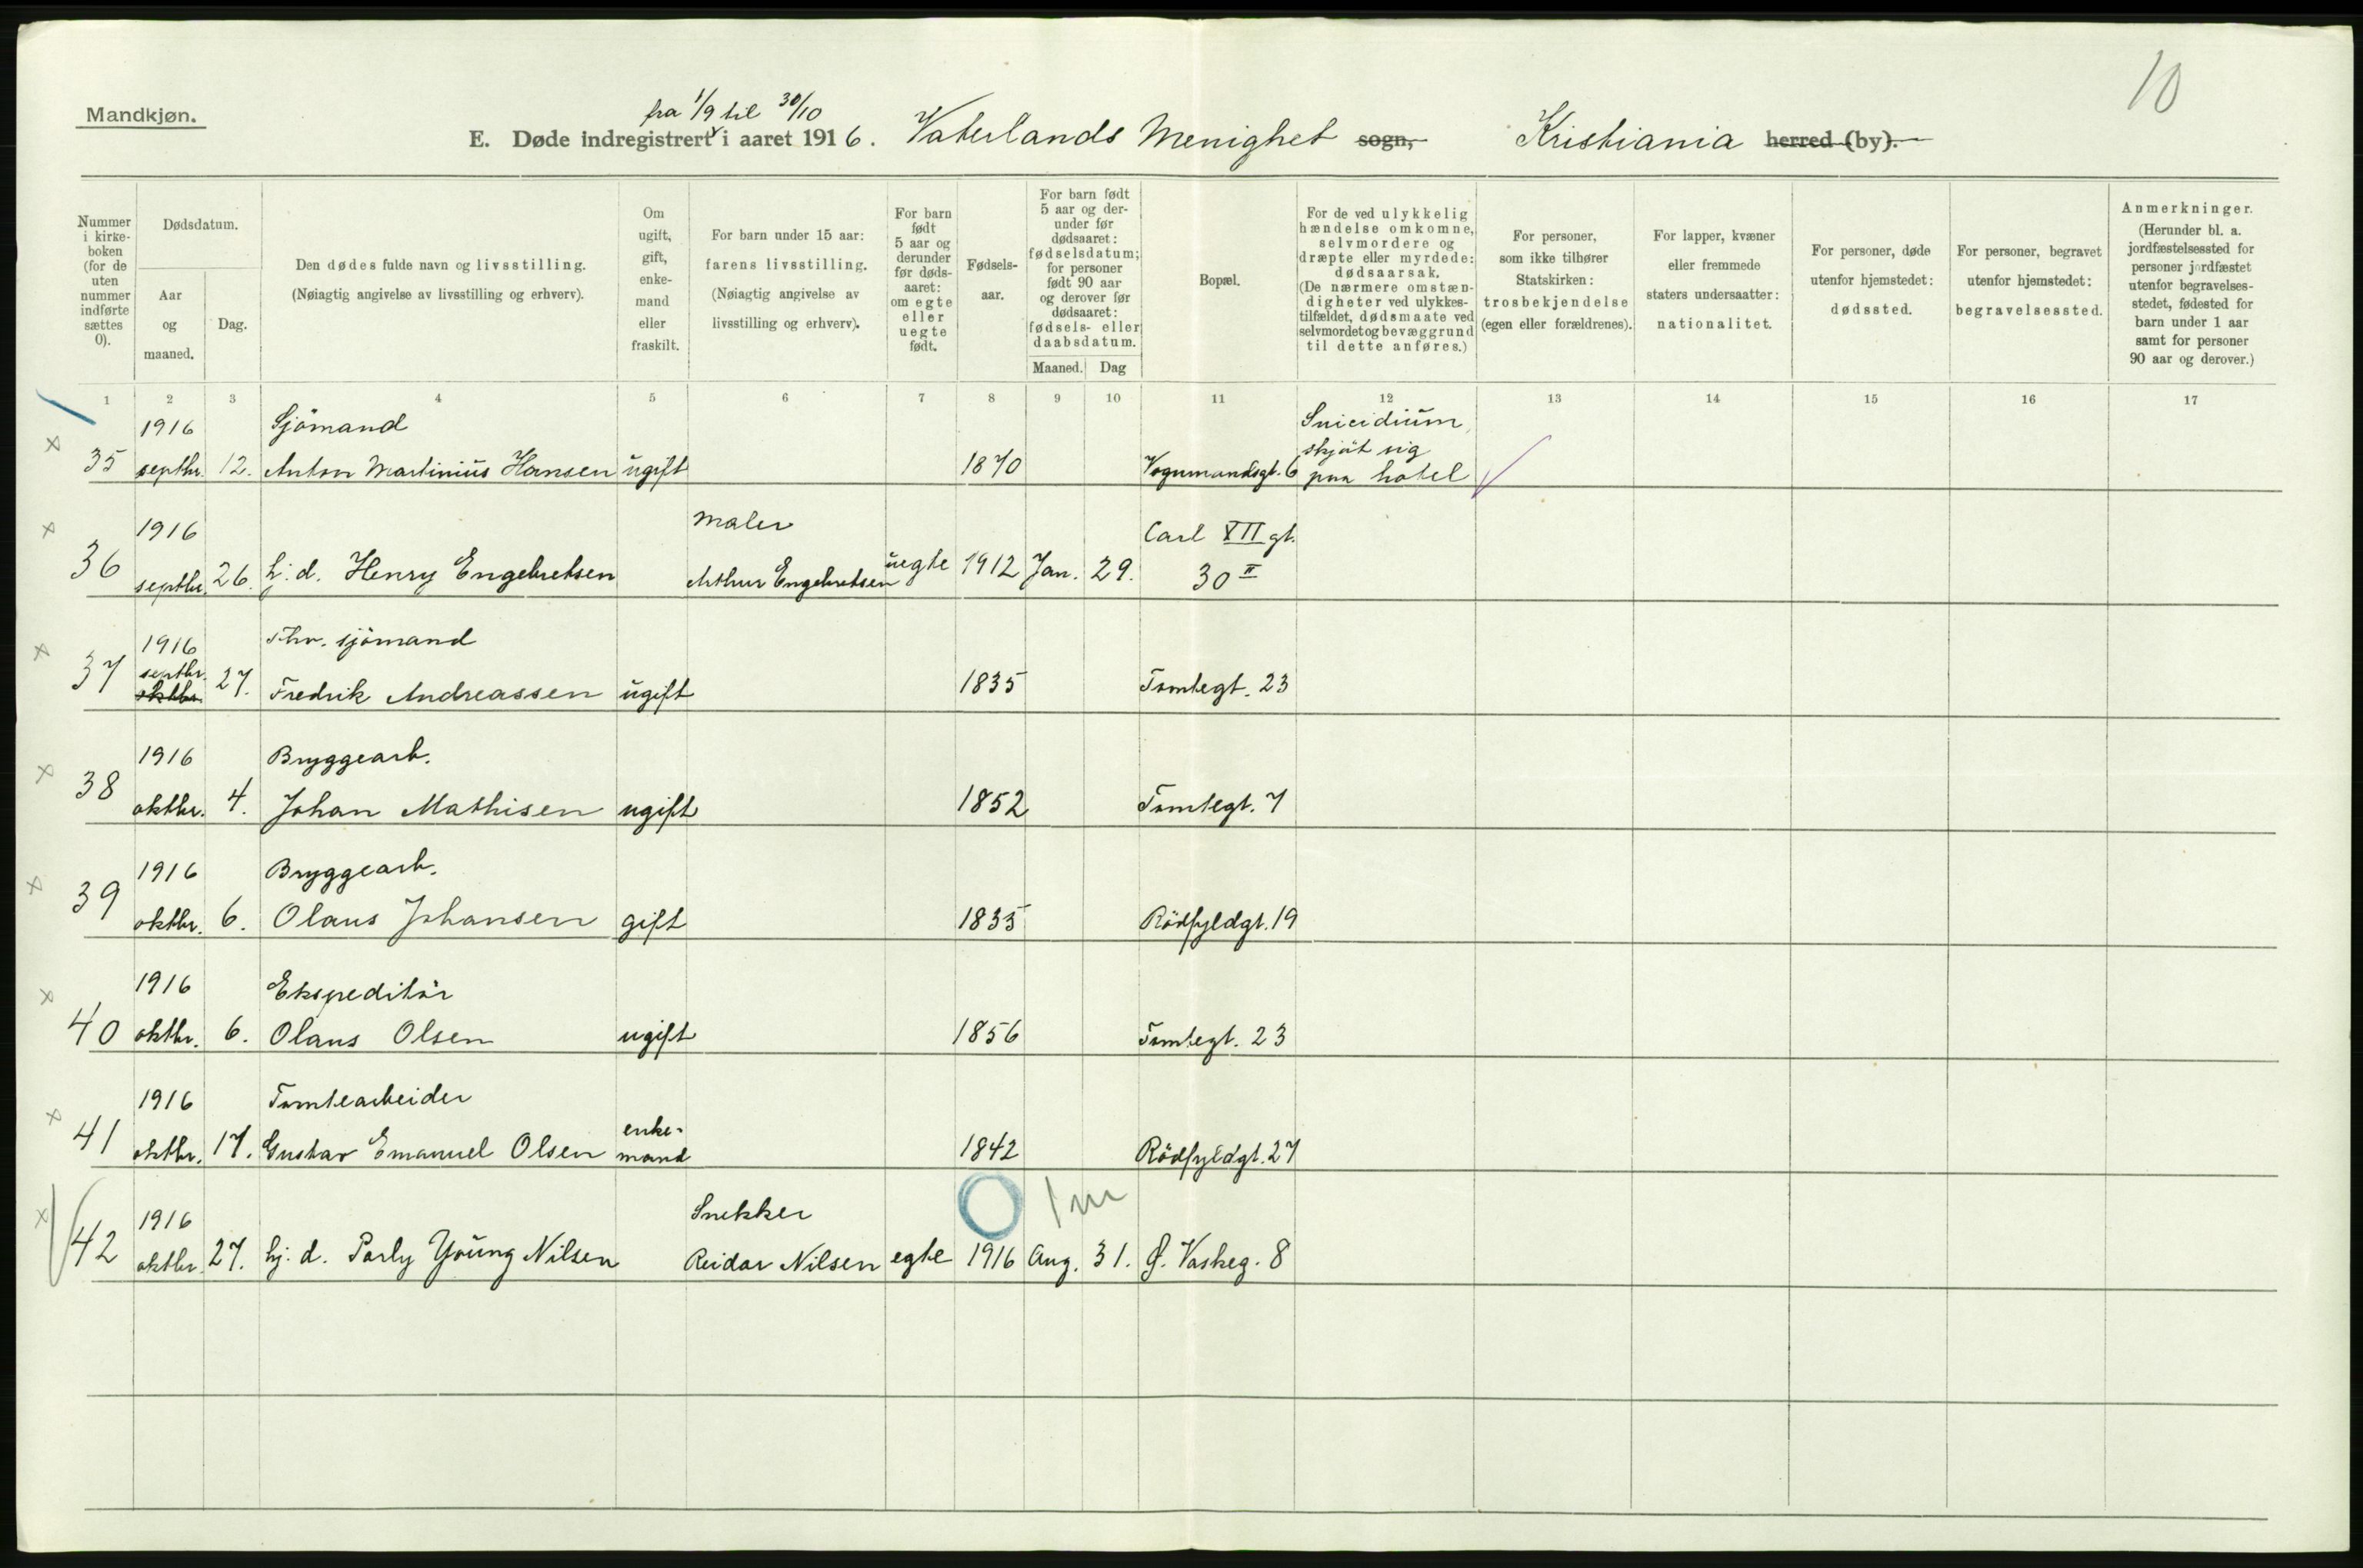 10
Mandkjøn.
fra 1/9 til 30/10
E. Døde indregistrert i aaret 1916. Vaterlands Menighet sogn, Kristiania herred (by).
Nummer i kirkeboken (for de uten nummer indførte sættes 0).
Dødsdatum.
Aar og maaned.
Dag.
Den dødes fulde navn og livsstilling.
(Nøiagtig angivelse av livsstilling og erhverv).
Om ugift, gift, enkemand eller fraskilt.
For barn under 15 aar: farens livsstilling.
(Nøiagtig angivelse av livsstilling og erhverv).
For barn født 5 aar og derunder før dødsaaret: om egte eller uegte født.
Fødselsaar.
For barn født 5 aar og derunder før dødsaaret: fødselsdatum; for personer født 90 aar og derover før dødsaaret: fødsels- eller daabsdatum.
Maaned. Dag
Bopæl.
For de ved ulykkelig hændelse omkomne, selvmordere og dræpte eller myrdede: dødsaarsak.
(De nærmere omstændigheter ved ulykkestilfældet, dødsmaate ved selvmordet og bevæggrund til dette anføres.)
For personer, som ikke tilhører Statskirken: trosbekjendelse (egen eller forældrenes).
For lapper, kvæner eller fremmede staters undersaatter: nationalitet.
For personer, døde utenfor hjemstedet: dødssted.
For personer, begravet utenfor hjemstedet: begravelsessted.
Anmerkninger.
(Herunder bl. a. jordfæstelsessted for personer jordfæstet utenfor begravelsesstedet, fødested for barn under 1 aar samt for personer 90 aar og derover.)
1 2 3 4 5 6 7 8 9 10 11 12 13 14 15 16 17
1916 Sjömand Suicidium,
skjöt sig
35 septbr. 12. Anton Martinius Hansen ugift 1870 Vognmandsgt. 6 paa hotel
1916 Maler Carl XII gt.
36 septbr. 26. hj. d. Henry Engebretsen Arthur Engebretsen uegte 1912 Jan. 29. 30 II
1916 Fhv. sjömand
septbr.
37 oktbr. 27. Fredrik Andreassen ugift 1835 Tomtegt. 23
1916 Bryggearb.
38 oktbr. 4. Johan Mathisen ugift 1852 Tomtegt. 7
1916 Bryggearb.
39 oktbr. 6. Olaus Johansen gift 1835 Rödfyldgt. 19
1916 Ekspeditör
40 oktbr. 6. Olaus Olsen ugift 1856 Tomtegt. 23
1916 Tomtearbeider
41 oktbr. 17. Gustav Emanuel Olsen enkemand 1842 Rödfyldgt. 27
1916 Snekker 1 m
42 oktbr. 27. hj. d. Parly Young Nilsen Reidar Nilsen egte 1916 Aug. 31. Ø. Vaskeg. 8